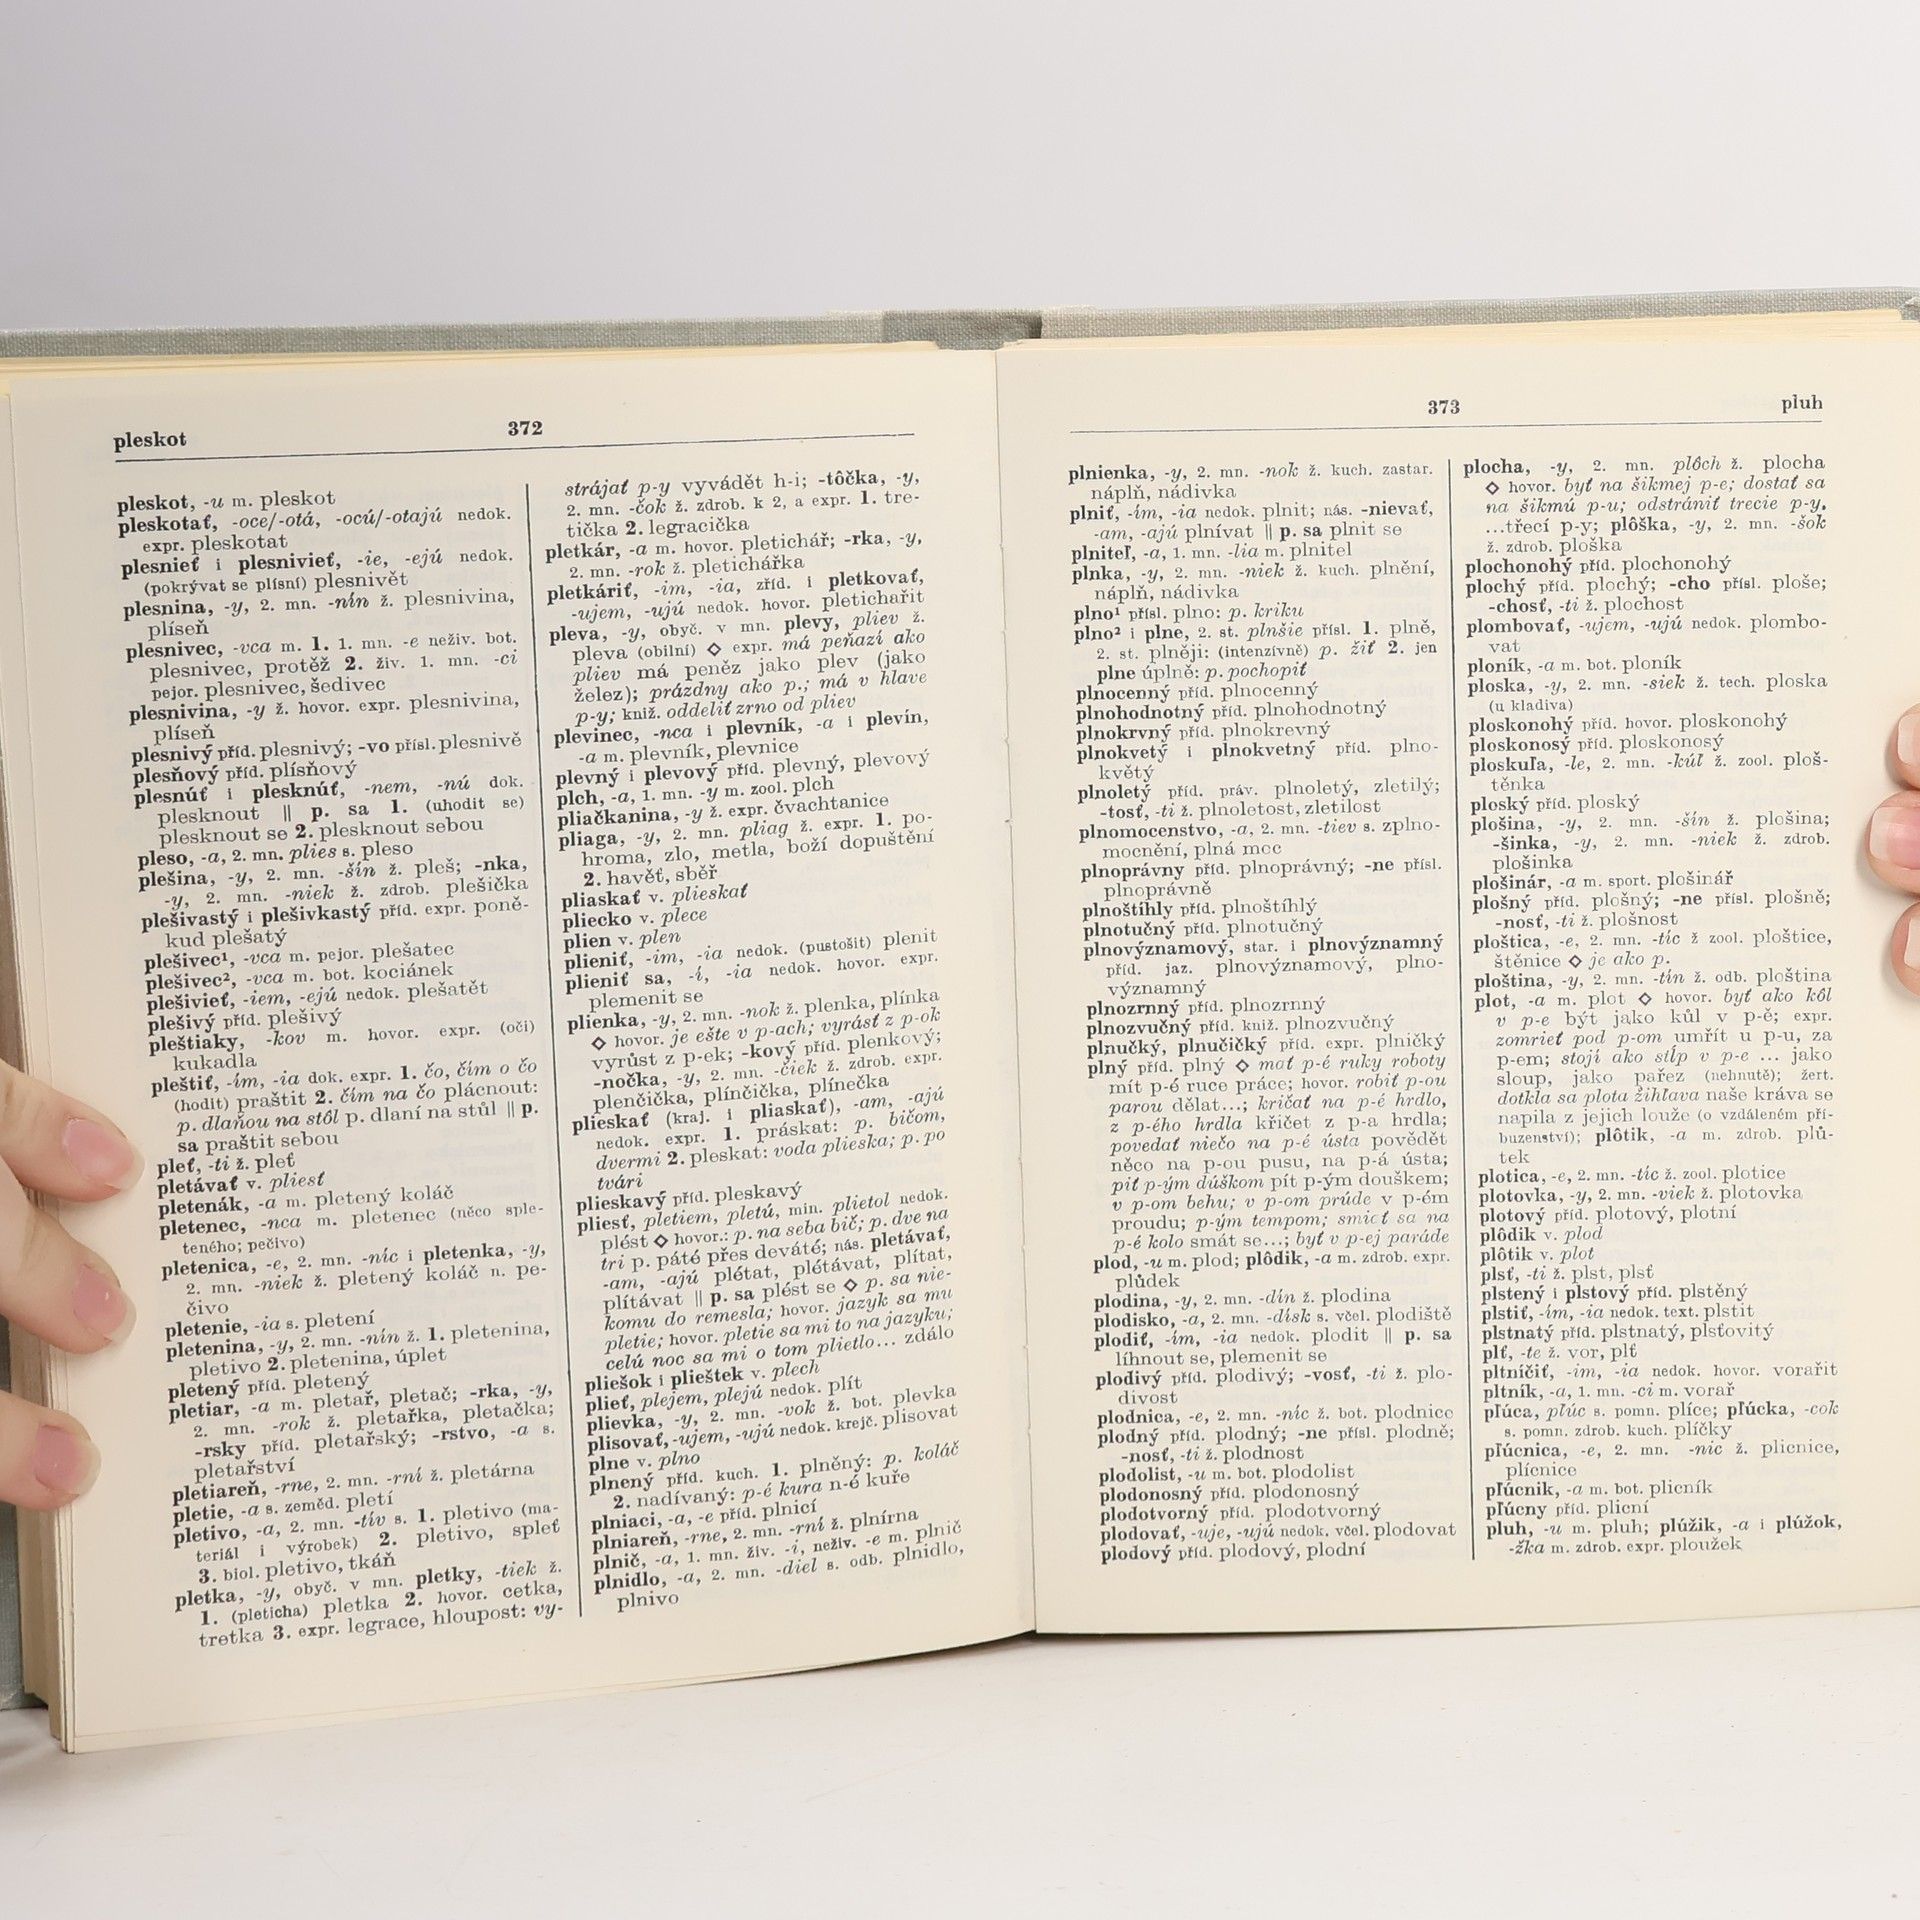 pleskot 372
pleskot, -u m. pleskot
pleskotať, -oce/-otá, -ocú/-otajú nedok.
expr. pleskotat
plesnieť i plesnivieť, -ie, -ejú nedok.
(pokrývat se plísní) plesnivět
plesnina, -y, 2. mn. -nín ž. plesnivina,
plíseň
plesnivec, -vca m. 1. 1. mn. -e neživ. bot.
plesnivec, protěž 2. živ. 1. mn. -ci
pejor. plesnivec, šedivec
plesnivina, -y ž. hovor. expr. plesnivina,
plíseň
plesnivý příd. plesnivý; -vo přísl. plesnivě
plesňový příd. plísňový
plesnúť i plesknúť, -nem, -nú dok.
plesknout || p. sa 1. (uhodit se)
plesknout se 2. plesknout sebou
pleso, -a, 2. mn. plies s. pleso
plešina, -y, 2. mn. -šín ž. pleš; -nka,
-y, 2. mn. -niek ž. zdrob. plešička
plešivastý i plešivkastý příd. expr. poně-
kud plešatý
plešivec¹, -vca m. pejor. plešatec
plešivec², -vca m. bot. kociánek
plešivieť, -iem, -ejú nedok. plešatět
plešivý příd. plešivý
pleštiaky, -kov m. hovor. expr. (oči)
kukadla
pleštiť, -ím, -ia dok. expr. 1. čo, čím o čo
(hodit) praštit 2. čím na čo plácnout:
p. dlaňou na stôl p. dlaní na stůl || p.
sa praštit sebou
pleť, -ti ž. pleť
pletávať v. pliesť
pletenák, -a m. pletený koláč
pletenec, -nca m. pletenec (něco sple-
teného; pečivo)
pletenica, -e, 2. mn. -níc i pletenka, -y,
2. mn. -niek ž. pletený koláč n. pe-
čivo
pletenie, -ia s. pletení
pletenina, -y, 2. mn. -nín ž. 1. pletenina,
pletivo 2. pletenina, úplet
pletený příd. pletený
pletiar, -a m. pletař, pletač; -rka, -y,
2. mn. -rok ž. pletařka, pletačka;
-rsky příd. pletařský; -rstvo, -a s.
pletařství
pletiareň, -rne, 2. mn. -rní ž. pletárna
pletie, -a s. zeměd. pletí
pletivo, -a, 2. mn. -tív s. 1. pletivo (ma-
teriál i výrobek) 2. pletivo, spleť
3. biol. pletivo, tkáň
pletka, -y, obyč. v mn. pletky, -tiek ž.
1. (pleticha) pletka 2. hovor. cetka,
tretka 3. expr. legrace, hloupost: vy-
strájať p-y vyvádět h-i; -tôčka, -y,
2. mn. -čok ž. zdrob. k 2, a expr. 1. tre-
tička 2. legracička
pletkár, -a m. hovor. pletichář; -rka, -y,
2. mn. -rok ž. pletichářka
pletkáriť, -im, -ia, zříd. i pletkovať,
-ujem, -ujú nedok. hovor. pletichařit
pleva, -y, obyč. v mn. plevy, pliev ž.
pleva (obilní) ◇ expr. má peňazí ako
pliev má peněz jako plev (jako
želez); prázdny ako p.; má v hlave
p-y; kniž. oddeliť zrno od pliev
plevinec, -nca i plevník, -a i plevín,
-a m. plevník, plevnice
plevný i plevový příd. plevný, plevový
plch, -a, 1. mn. -y m. zool. plch
pliačkanina, -y ž. expr. čvachtanice
pliaga, -y, 2. mn. pliag ž. expr. 1. po-
hroma, zlo, metla, boží dopuštění
2. havěť, sběř
pliaskať v. plieskať
pliecko v. plece
plien v. plen
plieniť, -im, -ia nedok. (pustošit) plenit
plieniť sa, -i, -ia nedok. hovor. expr.
plemenit se
plienka, -y, 2. mn. -nok ž. plenka, plínka
◇ hovor. je ešte v p-ach; vyrásť z p-ok
vyrůst z p-ek; -kový příd. plenkový;
-nočka, -y, 2. mn. -čiek ž. zdrob. expr.
plenčička, plínčička, plínečka
plieskať (kraj. i pliaskať), -am, -ajú
nedok. expr. 1. práskat: p. bičom,
dvermi 2. pleskat: voda plieska; p. po
tvári
plieskavý příd. pleskavý
pliesť, pletiem, pletú, min. plietol nedok.
plést ◇ hovor.: p. na seba bič; p. dve na
tri p. páté přes deváté; nás. pletávať,
-am, -ajú plétat, plétávat, plítat,
plítávat || p. sa plést se ◇ p. sa nie-
komu do remesla; hovor. jazyk sa mu
pletie; hovor. pletie sa mi to na jazyku;
celú noc sa mi o tom plietlo... zdálo
pliešok i plieštek v. plech
plieť, plejem, plejú nedok. plít
plievka, -y, 2. mn. -vok ž. bot. plevka
plisovať, -ujem, -ujú nedok. krejč. plisovat
plne v. plno
plnený příd. kuch. 1. plněný: p. koláč
2. nadívaný: p-é kura n-é kuře
plniaci, -a, -e příd. plnicí
plniareň, -rne, 2. mn. -rní ž. plnírna
plnič, -a, 1. mn. živ. -i, neživ. -e m. plnič
plnidlo, -a, 2. mn. -diel s. odb. plnidlo,
plnivo
373 pluh
plnienka, -y, 2. mn. -nok ž. kuch. zastar.
náplň, nádivka
plniť, -ím, -ia nedok. plnit; nás. -nievať,
-am, -ajú plnívat || p. sa plnit se
plniteľ, -a, 1. mn. -lia m. plnitel
plnka, -y, 2. mn. -niek ž. kuch. plnění,
náplň, nádivka
plno¹ přísl. plno: p. kriku
plno² i plne, 2. st. plnšie přísl. 1. plně,
2. st. plněji: (intenzívně) p. žiť 2. jen
plne úplně: p. pochopiť
plnocenný příd. plnocenný
plnohodnotný příd. plnohodnotný
plnokrvný příd. plnokrevný
plnokvetý i plnokvetný příd. plno-
květý
plnoletý příd. práv. plnoletý, zletilý;
-tosť, -ti ž. plnoletost, zletilost
plnomocenstvo, -a, 2. mn. -tiev s. zplno-
mocnění, plná moc
plnoprávny příd. plnoprávný; -ne přísl.
plnoprávně
plnoštíhly příd. plnoštíhlý
plnotučný příd. plnotučný
plnovýznamový, star. i plnovýznamný
příd. jaz. plnovýznamový, plno-
významný
plnozrnný příd. plnozrnný
plnozvučný příd. kniž. plnozvučný
plnučký, plnučičký příd. expr. plničký
plný příd. plný ◇ mať p-é ruky roboty
mít p-é ruce práce; hovor. robiť p-ou
parou dělat...; kričať na p-é hrdlo,
z p-ého hrdla křičet z p-a hrdla;
povedať niečo na p-é ústa povědět
něco na p-ou pusu, na p-á ústa;
piť p-ým dúškom pít p-ým douškem;
v p-om behu; v p-om prúde v p-ém
proudu; p-ým tempom; smiať sa na
p-é kolo smát se...; byť v p-ej paráde
plod, -u m. plod; plôdik, -a m. zdrob. expr.
plůdek
plodina, -y, 2. mn. -dín ž. plodina
plodisko, -a, 2. mn. -dísk s. včel. plodiště
plodiť, -ím, -ia nedok. plodit || p. sa
líhnout se, plemenit se
plodivý příd. plodivý; -vosť, -ti ž. plo-
divost
plodnica, -e, 2. mn. -níc ž. bot. plodnice
plodný příd. plodný; -ne přísl. plodně;
-nosť, -ti ž. plodnost
plodolist, -u m. bot. plodolist
plodonosný příd. plodonosný
plodotvorný příd. plodotvorný
plodovať, -uje, -ujú nedok. včel. plodovat
plodový příd. plodový, plodní
plocha, -y, 2. mn. plôch ž. plocha
◇ hovor. byť na šikmej p-e; dostať sa
na šikmú p-u; odstrániť trecie p-y,
...třecí p-y; plôška, -y, 2. mn. -šok
ž. zdrob. ploška
plochonohý příd. plochonohý
plochý příd. plochý; -cho přísl. ploše;
-chosť, -ti ž. plochost
plombovať, -ujem, -ujú nedok. plombo-
vat
ploník, -a m. bot. ploník
ploska, -y, 2. mn. -siek ž. tech. ploska
(u kladiva)
ploskonohý příd. hovor. ploskonohý
ploskonosý příd. ploskonosý
ploskuľa, -le, 2. mn. -kúľ ž. zool. ploš-
těnka
ploský příd. ploský
plošina, -y, 2. mn. -šín ž. plošina;
-šinka, -y, 2. mn. -niek ž. zdrob.
plošinka
plošinár, -a m. sport. plošinář
plošný příd. plošný; -ne přísl. plošně;
-nosť, -ti ž. plošnost
ploštica, -e, 2. mn. -tíc ž zool. ploštice,
štěnice ◇ je ako p.
ploština, -y, 2. mn. -tín ž. odb. ploština
plot, -a m. plot ◇ hovor. byť ako kôl
v p-e být jako kůl v p-ě; expr.
zomrieť pod p-om umřít u p-u, za
p-em; stojí ako stĺp v p-e ... jako
sloup, jako pařez (nehnutě); žert.
dotkla sa plota žihlava naše kráva se
napila z jejich louže (o vzdáleném pří-
buzenství); plôtik, -a m. zdrob. plů-
tek
plotica, -e, 2. mn. -tíc ž. zool. plotice
plotovka, -y, 2. mn. -viek ž. plotovka
plotový příd. plotový, plotní
plôdik v. plod
plôtik v. plot
plsť, -ti ž. plst, plsť
plstený i plstový příd. plstěný
plstiť, -ím, -ia nedok. text. plstit
plstnatý příd. plstnatý, plsťovitý
plť, -te ž. vor, plť
pltníčiť, -im, -ia nedok. hovor. vorařit
pltník, -a, 1. mn. -ci m. vorař
pľúca, pľúc s. pomn. plíce; pľúcka, -cok
s. pomn. zdrob. kuch. plíčky
pľúcnica, -e, 2. mn. -nic ž. plicnice,
plícnice
pľúcnik, -a m. bot. plicník
pľúcny příd. plicní
pluh, -u m. pluh; plúžik, -a i plúžok,
-žka m. zdrob. expr. ploužek